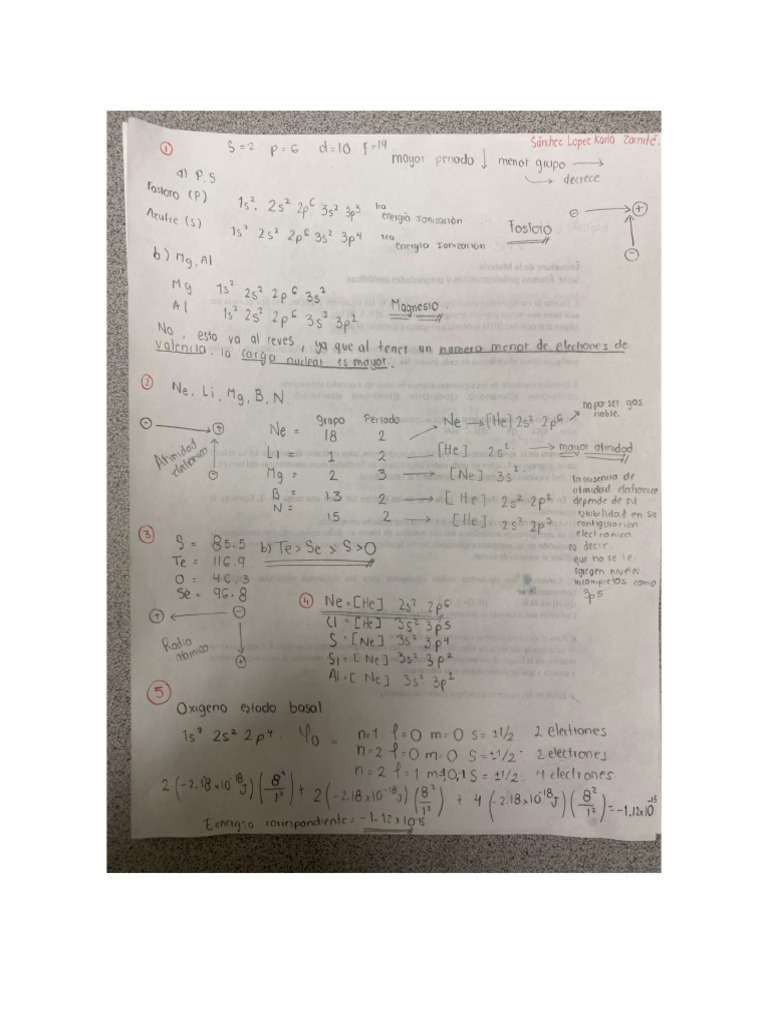 Sánchez Lopez Karla Zacnité.
① S=2 p=6 d=10 f=14
mayor periodo ↓ menor grupo →
↳ decrece
a) P, S
Fosforo (P) 1s² 2s² 2p⁶ 3s² 3p³ 1ra energía ionización
Azufre (S) 1s² 2s² 2p⁶ 3s² 3p⁴ 1ra energía ionización
Fosforo
⊖ → ⊕
⊖
b) Mg, Al
Mg 1s² 2s² 2p⁶ 3s²
Al 1s² 2s² 2p⁶ 3s² 3p²
Magnesio
No, esto va al reves, ya que al tener un numero menor de electrones de
valencia la carga nuclear es mayor.
② Ne, Li, Mg, B, N
⊖ → ⊕
Afinidad
eletronica
⊖
grupo Periodo
Ne = 18 2 → Ne → [He] 2s² 2p⁶ → no por ser gas noble.
Li = 1 2 → [He] 2s¹ → mayor afinidad.
Mg = 2 3 → [Ne] 3s²
B = 13 2 → [He] 2s² 2p²
N = 15 2 → [He] 2s² 2p³
la ausencia de
afinidad electronica
depende de su
estabilidad en su
configuración
electronica
es decir,
que no se le
niveles
incompletos como
3p5
③ S = 85.5 b) Te > Se > S > O
Te = 116.9
O = 46.3
Se = 96.8
⊕ ← ⊖
Radio
atómico
⊕
④ Ne = [He] 2s² 2p⁶
Cl = [He] 3s² 3p⁵
S = [Ne] 3s² 3p⁴
Si = [Ne] 3s² 3p²
Al = [Ne] 3s² 3p¹
⑤ Oxigeno estado basal
1s² 2s² 2p⁴ ψ₀ = n=1 l=0 m=0 S=±1/2 2 electrones
n=2 l=0 m=0 S=±1/2 2 electrones
n=2 l=1 m=1,0,-1 S=±1/2 4 electrones
2(-2.18x10⁻¹⁸J)(8²/1²) + 2(-2.18x10⁻¹⁸J)(8²/1²) + 4(-2.18x10⁻¹⁸J)(8²/1²) = -1.12x10⁻¹⁵
Energia correspondiente = -1.12x10⁻¹⁵